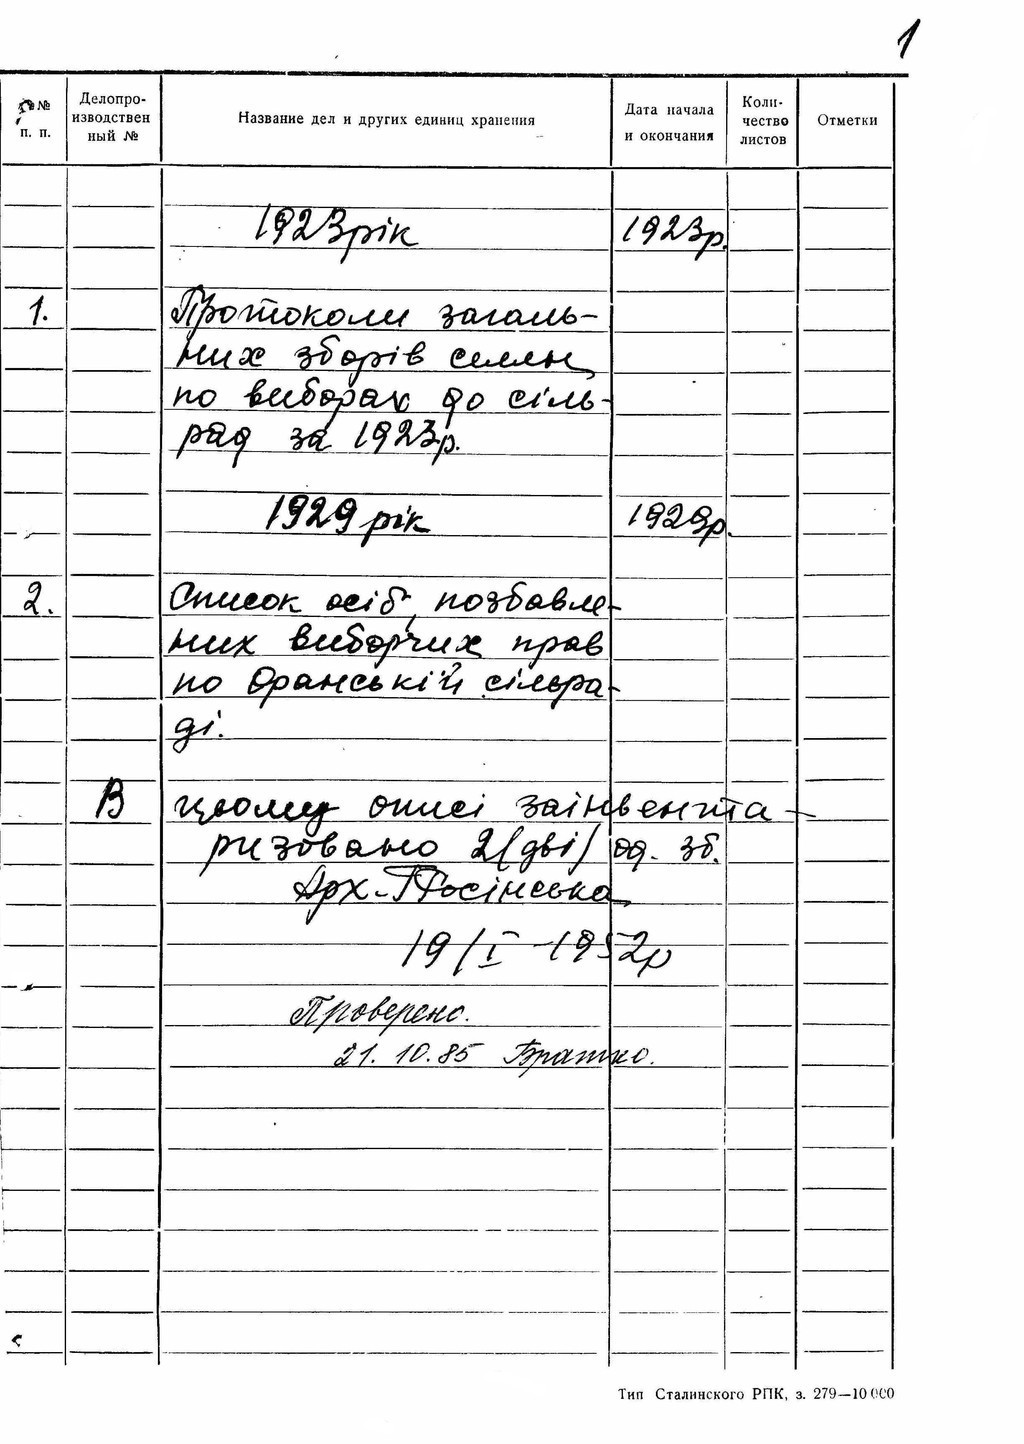 1
№№ п. п.
Делопроизводствен ный №
Название дел и других единиц хранения
Дата начала и окончания
Количество листов
Отметки
1923 рік 1923р.
1. Протоколи загаль-
них зборів селян
по виборах до сіль-
рад за 1923р.
1929 рік 1929р.
2. Список осіб, позбавле-
них виборчих прав
по Оранській сільра-
ді.
В цьому описі заінвента-
ризовано 2(дві) од. зб.
Арх-
19/I-1952р
Проверено.
21.10.85 Братко.
Тип Сталинского РПК, з. 279—10 000